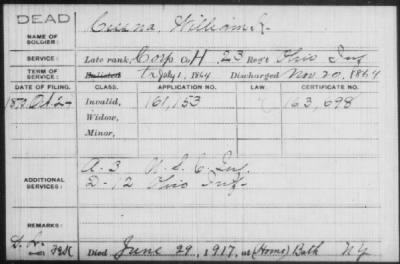 DEAD
NAME OF SOLDIER:
William
SERVICE:
Late rank, Corp Co. H, 23 Reg't Ohio Inf
TERM OF SERVICE:
Enlisted July 1, 1864 Discharged Nov. 20, 1864
DATE OF FILING.
CLASS.
APPLICATION NO.
LAW.
CERTIFICATE NO.
Oct. 2
Invalid,
161,153
163,698
Widow,
Minor,
ADDITIONAL SERVICES:
A-3 U.S.C. Inf.
D-12 Ohio Inf.
REMARKS:
Died June 29, 1917, at (Home) Bath NY